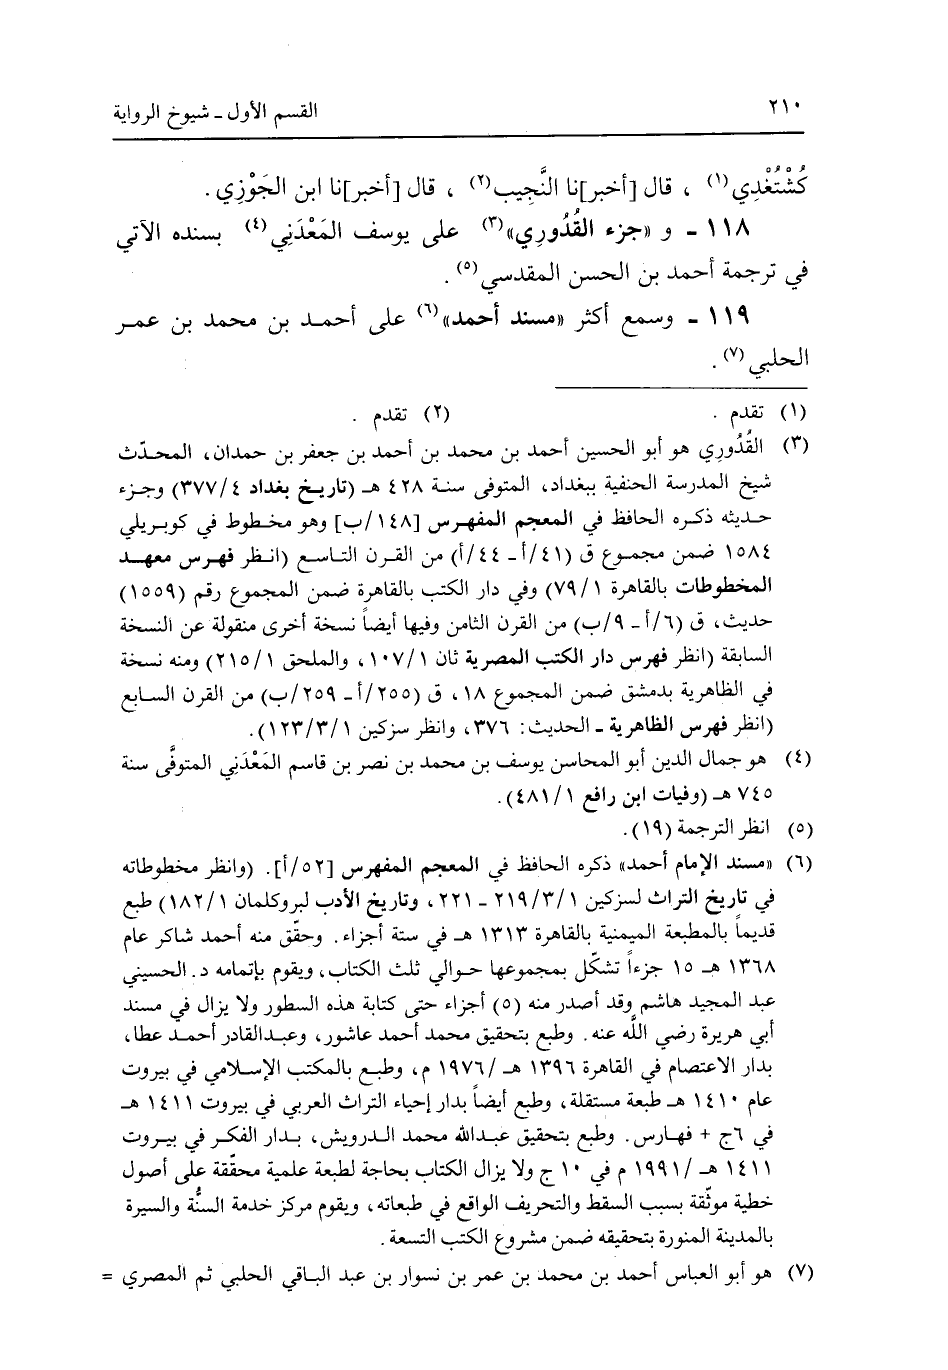 ٢١٠
القسم الأول ـ شيوخ الرواية
كُشْتُغْدِي(١) ، قال [أخبر]نا النَّجِيب(٢) ، قال [أخبر]نا ابن الجَوْزِي .
١١٨ ـ و «جزء القُدُورِي»(٣) على يوسف المَعْدَنِي(٤) بسنده الآتي
في ترجمة أحمد بن الحسن المقدسي(٥) .
١١٩ ـ وسمع أكثر «مسند أحمد»(٦) على أحمد بن محمد بن عمر
الحلبي(٧) .
(١) تقدم . (٢) تقدم .
(٣) القُدُورِي هو أبو الحسين أحمد بن محمد بن أحمد بن جعفر بن حمدان، المحدّث
شيخ المدرسة الحنفية ببغداد، المتوفى سنة ٤٢٨ هـ (تاريخ بغداد ٣٧٧/٤) وجزء
حديثه ذكره الحافظ في المعجم المفهرس [١٤٨/ب] وهو مخطوط في كوبريلي
١٥٨٤ ضمن مجموع ق (٤١/أ ـ ٤٤/أ) من القرن التاسع (انظر فهرس معهد
المخطوطات بالقاهرة ٧٩/١) وفي دار الكتب بالقاهرة ضمن المجموع رقم (١٥٥٩)
حديث، ق (٦/أ ـ ٩/ب) من القرن الثامن وفيها أيضاً نسخة أخرى منقولة عن النسخة
السابقة (انظر فهرس دار الكتب المصرية ثان ١٠٧/١، والملحق ٢١٥/١) ومنه نسخة
في الظاهرية بدمشق ضمن المجموع ١٨، ق (٢٥٥/أ ـ ٢٥٩/ب) من القرن السابع
(انظر فهرس الظاهرية ـ الحديث: ٣٧٦، وانظر سزكين ١٢٣/٣/١).
(٤) هو جمال الدين أبو المحاسن يوسف بن محمد بن نصر بن قاسم المَعْدَنِي المتوفَّى سنة
٧٤٥ هـ (وفيات ابن رافع ٤٨١/١).
(٥) انظر الترجمة (١٩).
(٦) «مسند الإمام أحمد» ذكره الحافظ في المعجم المفهرس [٥٢/أ]. (وانظر مخطوطاته
في تاريخ التراث لسزكين ٢١٩/٣/١ ـ ٢٢١، وتاريخ الأدب لبروكلمان ١٨٢/١) طبع
قديماً بالمطبعة الميمنية بالقاهرة ١٣١٣ هـ في ستة أجزاء. وحقّق منه أحمد شاكر عام
١٣٦٨ هـ ١٥ جزءاً تشكّل بمجموعها حوالي ثلث الكتاب، ويقوم بإتمامه د. الحسيني
عبد المجيد هاشم وقد أصدر منه (٥) أجزاء حتى كتابة هذه السطور ولا يزال في مسند
أبي هريرة رضي اللَّه عنه. وطبع بتحقيق محمد أحمد عاشور، وعبدالقادر أحمد عطا،
بدار الاعتصام في القاهرة ١٣٩٦ هـ/١٩٧٦ م، وطبع بالمكتب الإسلامي في بيروت
عام ١٤١٠ هـ طبعة مستقلة، وطبع أيضاً بدار إحياء التراث العربي في بيروت ١٤١١ هـ
في ٦ج + فهارس. وطبع بتحقيق عبدالله محمد الدرويش، بدار الفكر في بيروت
١٤١١ هـ /١٩٩١ م في ١٠ ج ولا يزال الكتاب بحاجة لطبعة علمية محقّقة على أصول
خطية موثّقة بسبب السقط والتحريف الواقع في طبعاته، ويقوم مركز خدمة السنُّة والسيرة
بالمدينة المنورة بتحقيقه ضمن مشروع الكتب التسعة .
(٧) هو أبو العباس أحمد بن محمد بن عمر بن نسوار بن عبد الباقي الحلبي ثم المصري =